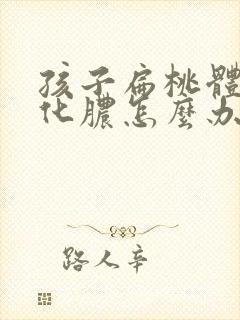 孩子扁桃體
化膿怎麼办
路人辛